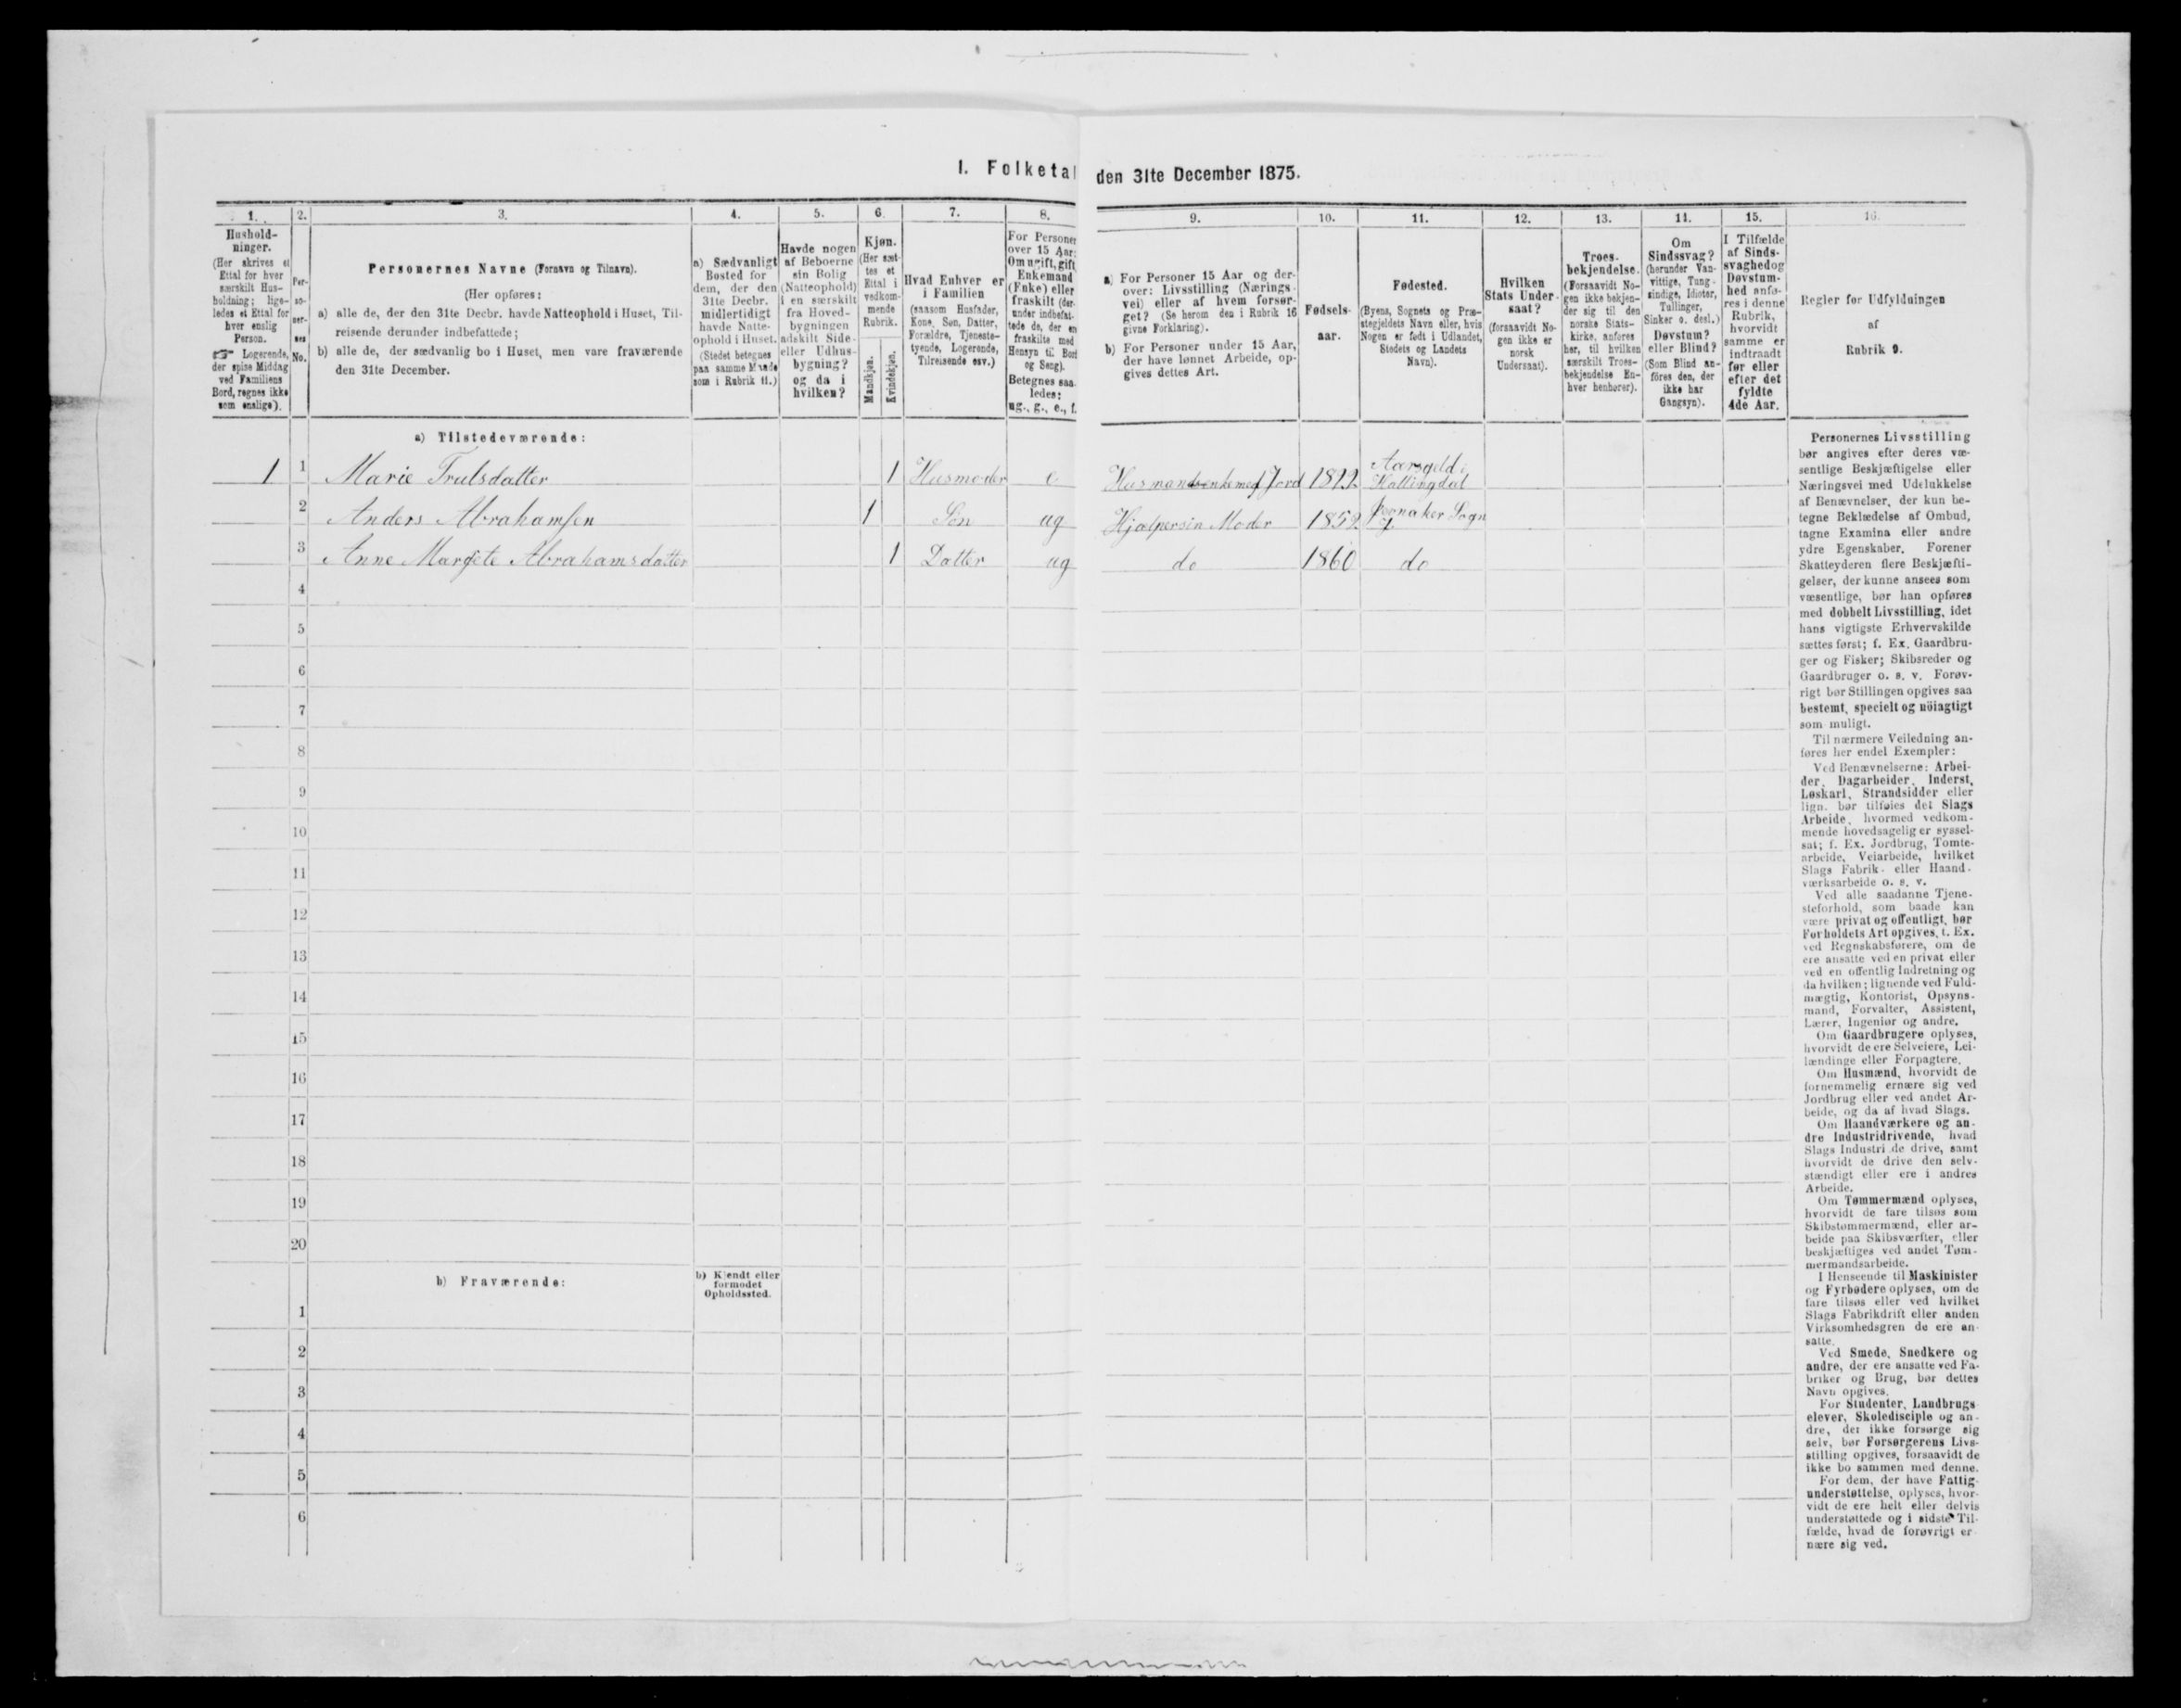 I. Folketal den 31te December 1875.
1. 2. 3. 4. 5. 6. 7. 8. 9. 10. 11. 12. 13. 14. 15. 16.
Hushold-
ninger.
(Her skrives et
Ettal for hver
særskilt Hus-
holdning; lige-
ledes et Ettal for
hver enslig
Person.
☞ Logerende,
der spise Middag
ved Familiens
Bord, regnes ikke
som enslige).
Per-
so-
ner-
nes
No.
Personernes Navne (Fornavn og Tilnavn).
(Her opføres:
a) alle de, der den 31te Decbr. havde Natteophold i Huset, Til-
reisende derunder indbefattede;
b) alle de, der sædvanlig bo i Huset, men vare fraværende
den 31te December.
a) Sædvanligt
Bosted for
dem, der den
31te Decbr.
midlertidigt
havde Natte-
ophold i Huset.
(Stedet betegnes
paa samme Maade
som i Rubrik 11.)
Havde nogen
af Beboerne
sin Bolig
(Natteophold)
i en særskilt
fra Hoved-
bygningen
adskilt Side-
eller Udhus-
bygning?
og da i
hvilken?
Kjøn.
(Her sæt-
tes et
Ettal i
vedkom-
mende
Rubrik.
Mandkjøn.
Kvindekjøn.
Hvad Enhver er
i Familien
(saasom Husfader,
Kone, Søn, Datter,
Forældre, Tjeneste-
tyende, Logerende,
Tilreisende osv.)
For Personer
over 15 Aar:
Om ugift, gift,
Enkemand
(Enke) eller
fraskilt (der-
under indbefat-
tede de, der en
fraskilte med
Hensyn til Bord
og Seng).
Betegnes saa-
ledes:
ug., g., e., f.
a) For Personer 15 Aar og der-
over: Livsstilling (Nærings-
vei) eller af hvem forsør-
get? (Se herom den i Rubrik 16
givne Forklaring).
b) For Personer under 15 Aar,
der have lønnet Arbeide, op-
gives dettes Art.
Fødsels-
aar.
Fødested.
(Byens, Sognets og Præ-
stegjeldets Navn eller, hvis
Nogen er født i Udlandet,
Stedets og Landets
Navn).
Hvilken
Stats Under-
saat?
(forsaavidt No-
gen ikke er
norsk
Undersaat).
Troes-
bekjendelse.
(Forsaavidt No-
gen ikke bekjen-
der sig til den
norske Stats-
kirke, anføres
her, til hvilken
særskilt Troes-
bekjendelse En-
hver henhører).
Om
Sindssvag?
(herunder Van-
vittige, Tung-
sindige, Idioter,
Tullinger,
Sinker o. desl.)
Døvstum?
eller Blind?
(Som Blind an-
føres den, der
ikke har
Gangsyn).
I Tilfælde
af Sinds-
svaghed og
Døvstum-
hed anfø-
res i denne
Rubrik,
hvorvidt
samme er
indtraadt
før eller
efter det
fyldte
4de Aar.
Regler for Udfyldningen
af
Rubrik 9.
a) Tilstedeværende:
1 1 Marie Trulsdatter 1 Husmoder e Husmandsenke med Jord 1822 Aarsgeld i Hallingdal
2 Anders Abrahamsen 1 Søn ug Hjælper sin Moder 1852 Jevnaker Sogn
3 Anne Margete Abrahamsdatter 1 Datter ug do 1860 do
4
5
6
7
8
9
10
11
12
13
14
15
16
17
18
19
20
b) Fraværende:
b) Kjendt eller
formodet
Opholdssted.
1
2
3
4
5
6
Personernes Livsstilling
bør angives efter deres væ-
sentlige Beskjæftigelse eller
Næringsvei med Udelukkelse
af Benævnelser, der kun be-
tegne Beklædelse af Ombud,
tagne Examina eller andre
ydre Egenskaber. Forener
Skatteyderen flere Beskjæfti-
gelser, der kunne ansees som
væsentlige, bør han opføres
med dobbelt Livsstilling, idet
hans vigtigste Erhvervskilde
sættes først; f. Ex. Gaardbru-
ger og Fisker; Skibsreder og
Gaardbruger o. s. v. Forøv-
rigt bør Stillingen opgives saa
bestemt, specielt og nöiagtigt
som muligt.
Til nærmere Veiledning an-
føres her endel Exempler:
Ved Benævnelserne: Arbei-
der, Dagarbeider, Inderst,
Løskarl, Strandsidder eller
lign. bør tilføies det Slags
Arbeide, hvormed vedkom-
mende hovedsagelig er syssel-
sat; f. Ex. Jordbrug, Tomte-
arbeide, Veiarbeide, hvilket
Slags Fabrik- eller Haand-
værksarbeide o. s. v.
Ved alle saadanne Tjene-
steforhold, som baade kan
være privat og offentligt, bør
Forholdets Art opgives, f. Ex.
ved Regnskabsførere, om de
ere ansatte ved en privat eller
ved en offentlig Indretning og
da hvilken; lignende ved Fuld-
mægtig, Kontorist, Opsyns-
mand, Forvalter, Assistent,
Lærer, Ingeniør og andre.
Om Gaardbrugere oplyses,
hvorvidt de ere Selveiere, Lei-
lændinge eller Forpagtere.
Om Husmænd, hvorvidt de
fornemmelig ernære sig ved
Jordbrug eller ved andet Ar-
beide, og da af hvad Slags.
Om Haandværkere og an-
dre Industridrivende, hvad
Slags Industri de drive, samt
hvorvidt de drive den selv-
stændigt eller ere i andres
Arbeide.
Om Tømmermænd oplyses,
hvorvidt de fare tilsøs som
Skibstømmermænd, eller ar-
beide paa Skibsværfter, eller
beskjæftiges ved andet Tøm-
mermandsarbeide.
I Henseende til Maskinister
og Fyrbødere oplyses, om de
fare tilsøs eller ved hvilket
Slags Fabrikdrift eller anden
Virksomhedsgren de ere an-
satte.
Ved Smede, Snedkere og
andre, der ere ansatte ved Fa-
briker og Brug, bør dettes
Navn opgives.
For Studenter, Landbrugs-
elever, Skoledisciple og an-
dre, der ikke forsørge sig
selv, bør Forsørgerens Livs-
stilling opgives, forsaavidt de
ikke bo sammen med denne.
For dem, der have Fattig-
understøttelse, oplyses, hvor-
vidt de ere helt eller delvis
understøttede og i sidste Til-
fælde, hvad de forøvrigt er-
nære sig ved.